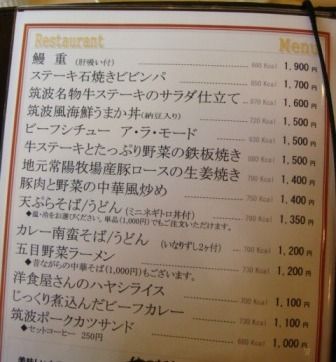 Restaurant Menu
鰻 重 (肝吸い付) 660 Kcal 1,900円
ステーキ石焼きビビンバ 850 Kcal 1,700円
筑波名物牛ステーキのサラダ仕立て 670 Kcal 1,600円
筑波風海鮮うまか丼(納豆入り) 1,500円
ビーフシチュー ア・ラ・モード 930 Kcal 1,500円
牛ステーキとたっぷり野菜の鉄板焼き 1,500円
地元常陽牧場産豚ロースの生姜焼き 780 Kcal 1,400円
豚肉と野菜の中華風炒め 750 Kcal 1,400円
天ぷらそば/うどん (ミニネギトロ丼付) 1,350円
◆温・冷をお選びください。単品(1,000円)でもご注文いただけます。
カレー南蛮そば/うどん (いなりずし2ヶ付) 700 Kcal 1,200円
五目野菜ラーメン 730 Kcal 1,200円
◆昔ながらの中華そば(1,000円)もございます。
洋食屋さんのハヤシライス 700 Kcal 1,100円
じっくり煮込んだビーフカレー 730 Kcal 1,100円
筑波ポークカツサンド 680 Kcal 1,000円
◆セットコーヒー 250円